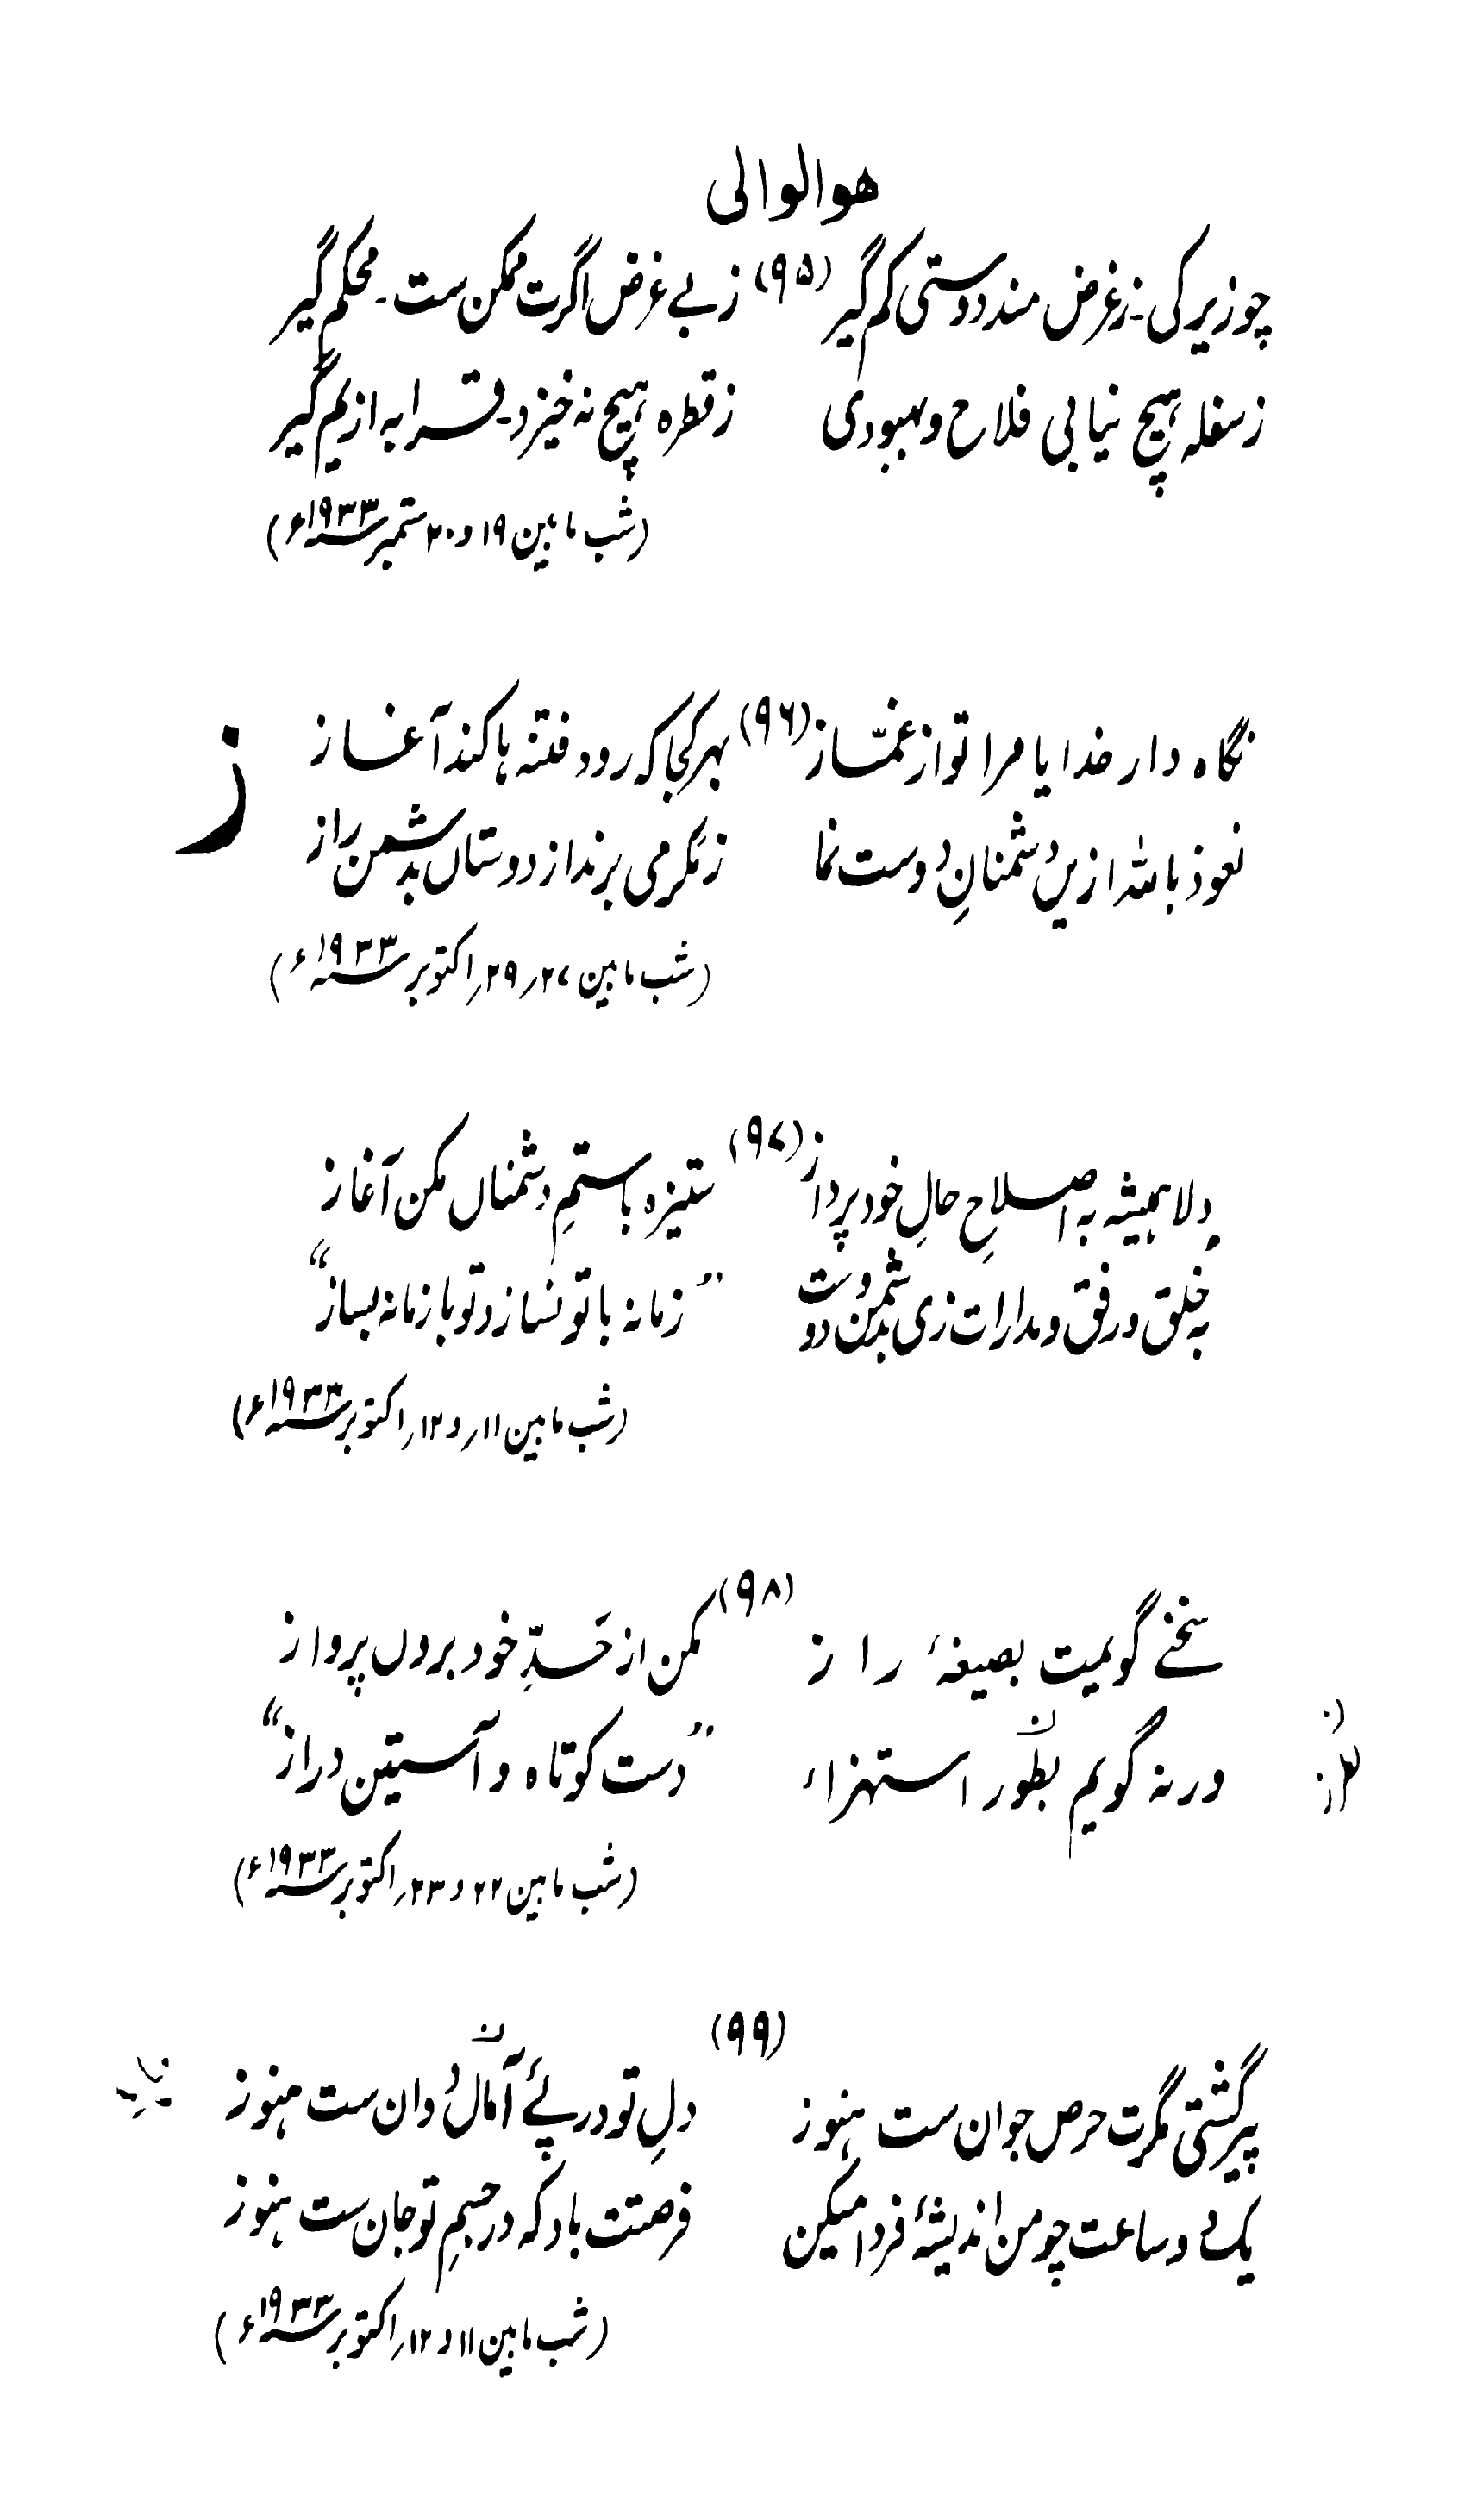 هوالوالی
(۹۵)
چو زیرکی۔ ز غرض مند دوستی کم گیر
ز بے غرض اگرت ممکن ست۔ محکم گیر
ز سفله هیچ نیابی فلاح و بهبودی
ز قطره هیچ نه خیزد۔ قرابه از یم گیر
(شب مابین ۱۹ و ۲۰ ستمبر ۱۹۳۳ء)
ز
(۹۶)
نگاه دار خدایا مرا تو از غمّاز
بهر کجا که رود فتنه ها کند آغاز
نعوذ بالله ازین دشمنانِ دوست نما
ز مکر می برند از دوستان بدشمن راز
(شب مابین ۲۸ر ۲۹ر اکتوبر ۱۹۳۳ء)
(۹۷)
دلا همیشه به اصلاحِ حالِ خود پرداز
ستیزه با ستمِ دشمنان مکن آغاز
به خلق و رفق و مدارات زی بدشمن و دوست
"زمانه با تو نسازد تو با زمانه بساز"
(شب مابین ۱۱ر و ۱۲ر اکتوبر ۱۹۳۳ء)
(۹۸)
سخنے گویمت بصیغهٔ راز
مکن از حَدِّ خود بروں پرواز
ورنه گویم بطور استهزاء
"دست کوتاه و آستین دراز"
(شب مابین ۲۲ و ۲۳ر اکتوبر ۱۹۳۳ء)
(۹۹)
پیر گشتی مگرت حرص جوان ست هنوز
دلِ تو در پئے آمال دوان ست هنوز
یک دو ساعت چو من اندیشهٔ فردا میکن
فرصتت باد که در جسمِ تو جان ست هنوز
(شب مابین ۱۱ و ۱۲ر اکتوبر ۱۹۳۳ء)